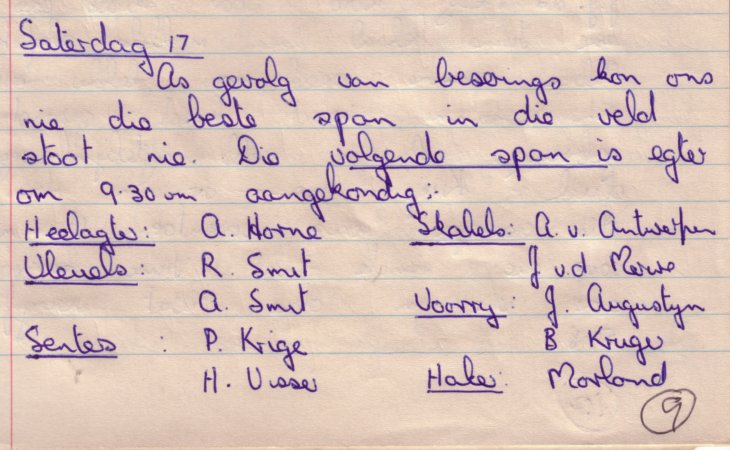 Saterdag 17
As gevolg van beserings kon ons
nie die beste span in die veld
stoot nie. Die volgende span is egter
om 9.30 vm aangekondig:-
Heelagter: A. Horne Skakels: A. v. Antwerpen
Vleuels: R. Smit J v.d Merwe
A. Smit Voorry: J. Augustyn
Senters : P. Krige B Kruger
H. Visser Haker: Morland
9